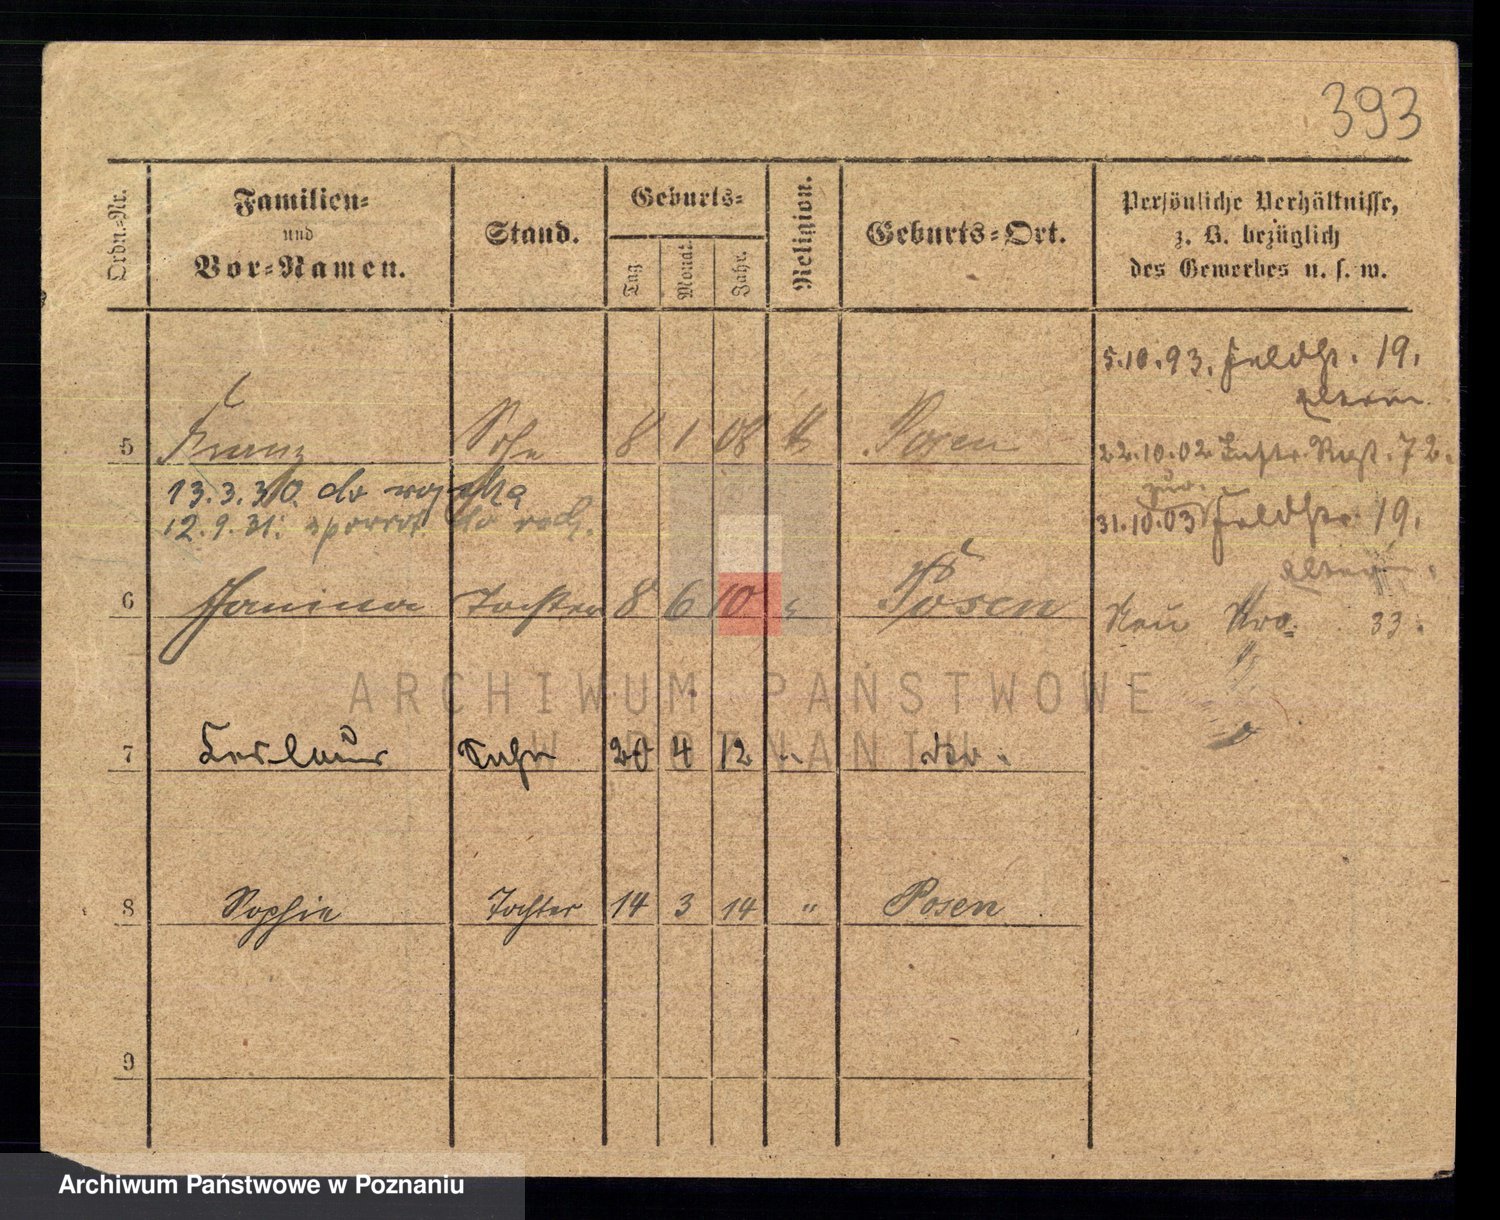 393
Ordn.-Nr.
Familien-
und
Vor-Namen.
Stand.
Geburts-
Tag
Monat
Jahr.
Religion.
Geburts-Ort.
Persönliche Verhältnisse,
z. B. bezüglich
des Gewerbes u. s. w.
5.10.93. Feldstr. 19.
Eltern.
5 Franz Sohn 8 1 08 k Posen
22.10.02 72.
zur.
13.3.30. do wojska
12.9.31. z powrot do rodz.
31.10.03 Feldstr. 19.
Eltern.
6 Janina Tochter 8 6 10 " Posen
Neu 33.
7 20 4 12 " do.
8 Sophie Tochter 14 3 14 " Posen
9
ARCHIWUM PAŃSTWOWE
W POZNANIU
Archiwum Państwowe w Poznaniu